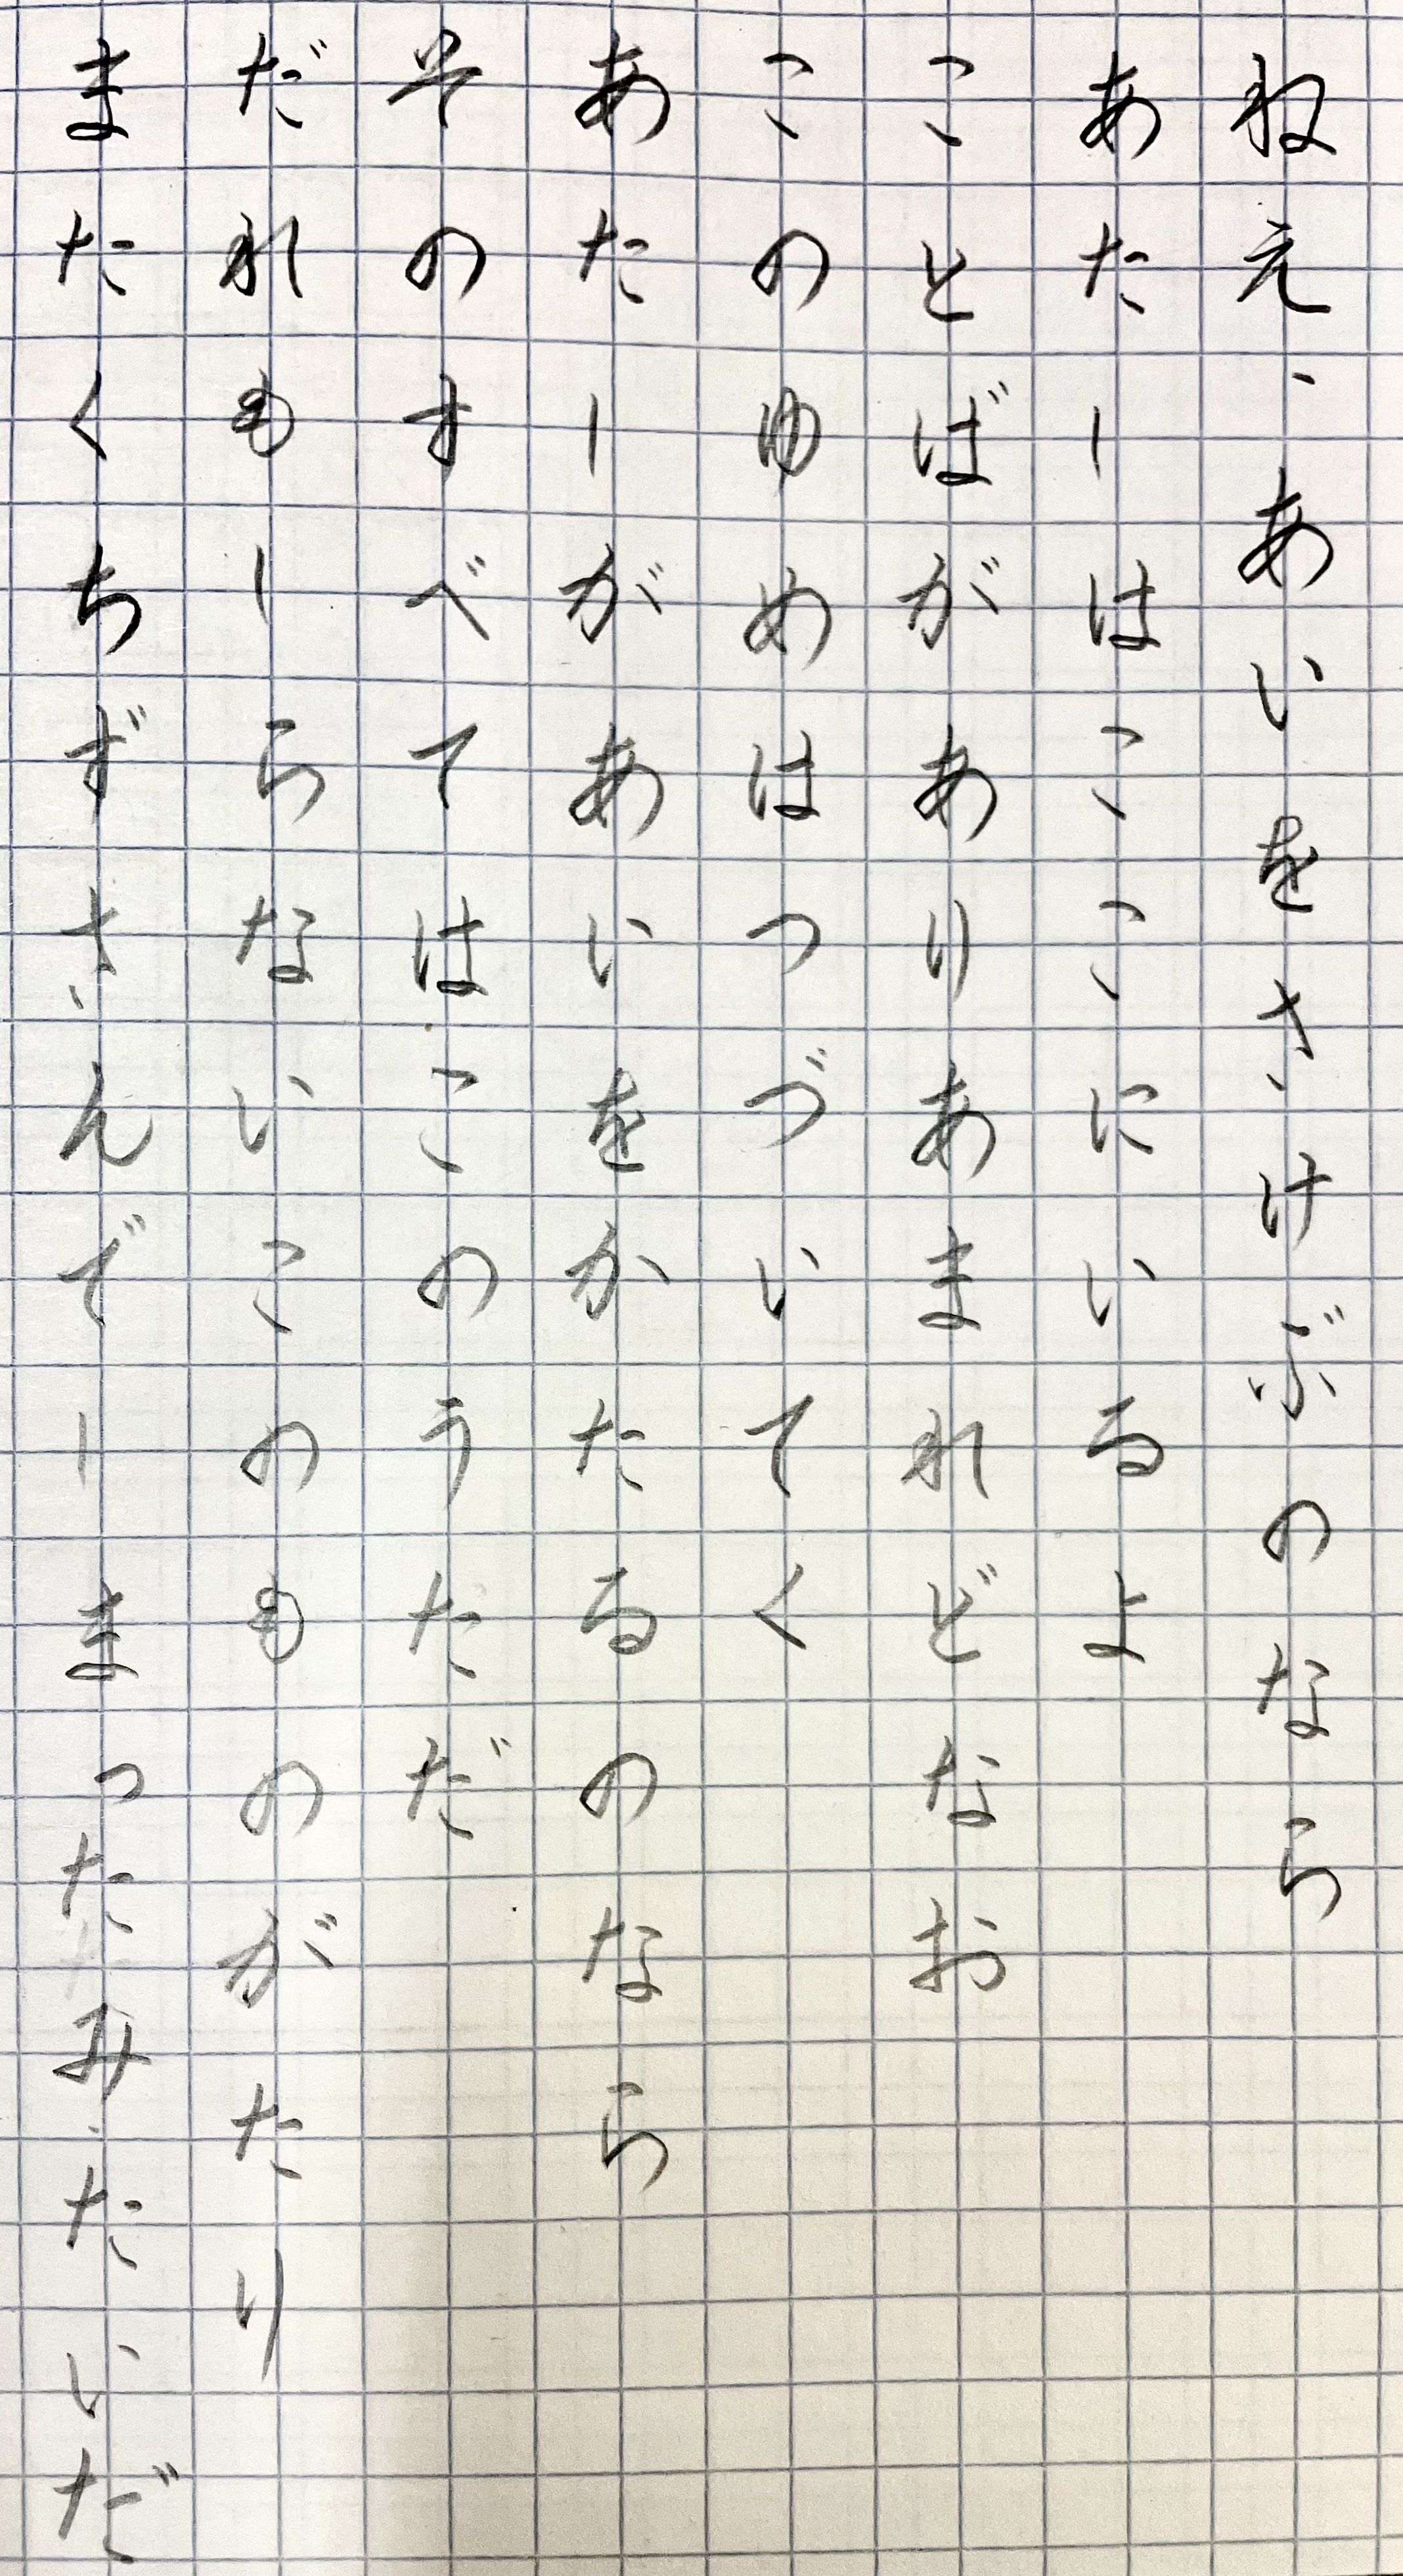 ねえ、あいをさけぶのなら
あたしはここにいるよ
ことばがありあまれどなお
このゆめはつづいてく
あたしがあいをかたるのなら
そのすべてはこのうただ
だれもしらないこのものがたり
またくちずさんでしまったみたいだ